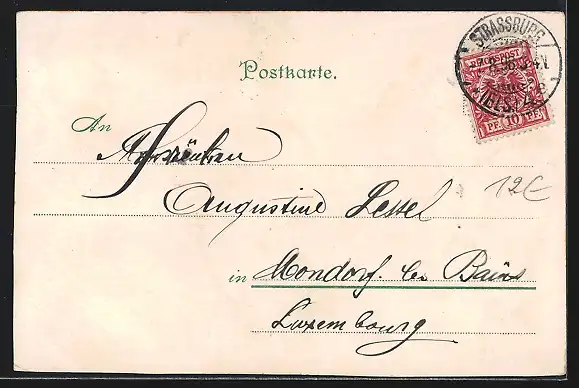 STRASSBURG
(ELS.)
REICHSPOST
PF. 10 PF.
Postkarte.
An
Fräulein
Augustine Lessel
12€
in Mondorf les Bains
Luxembourg